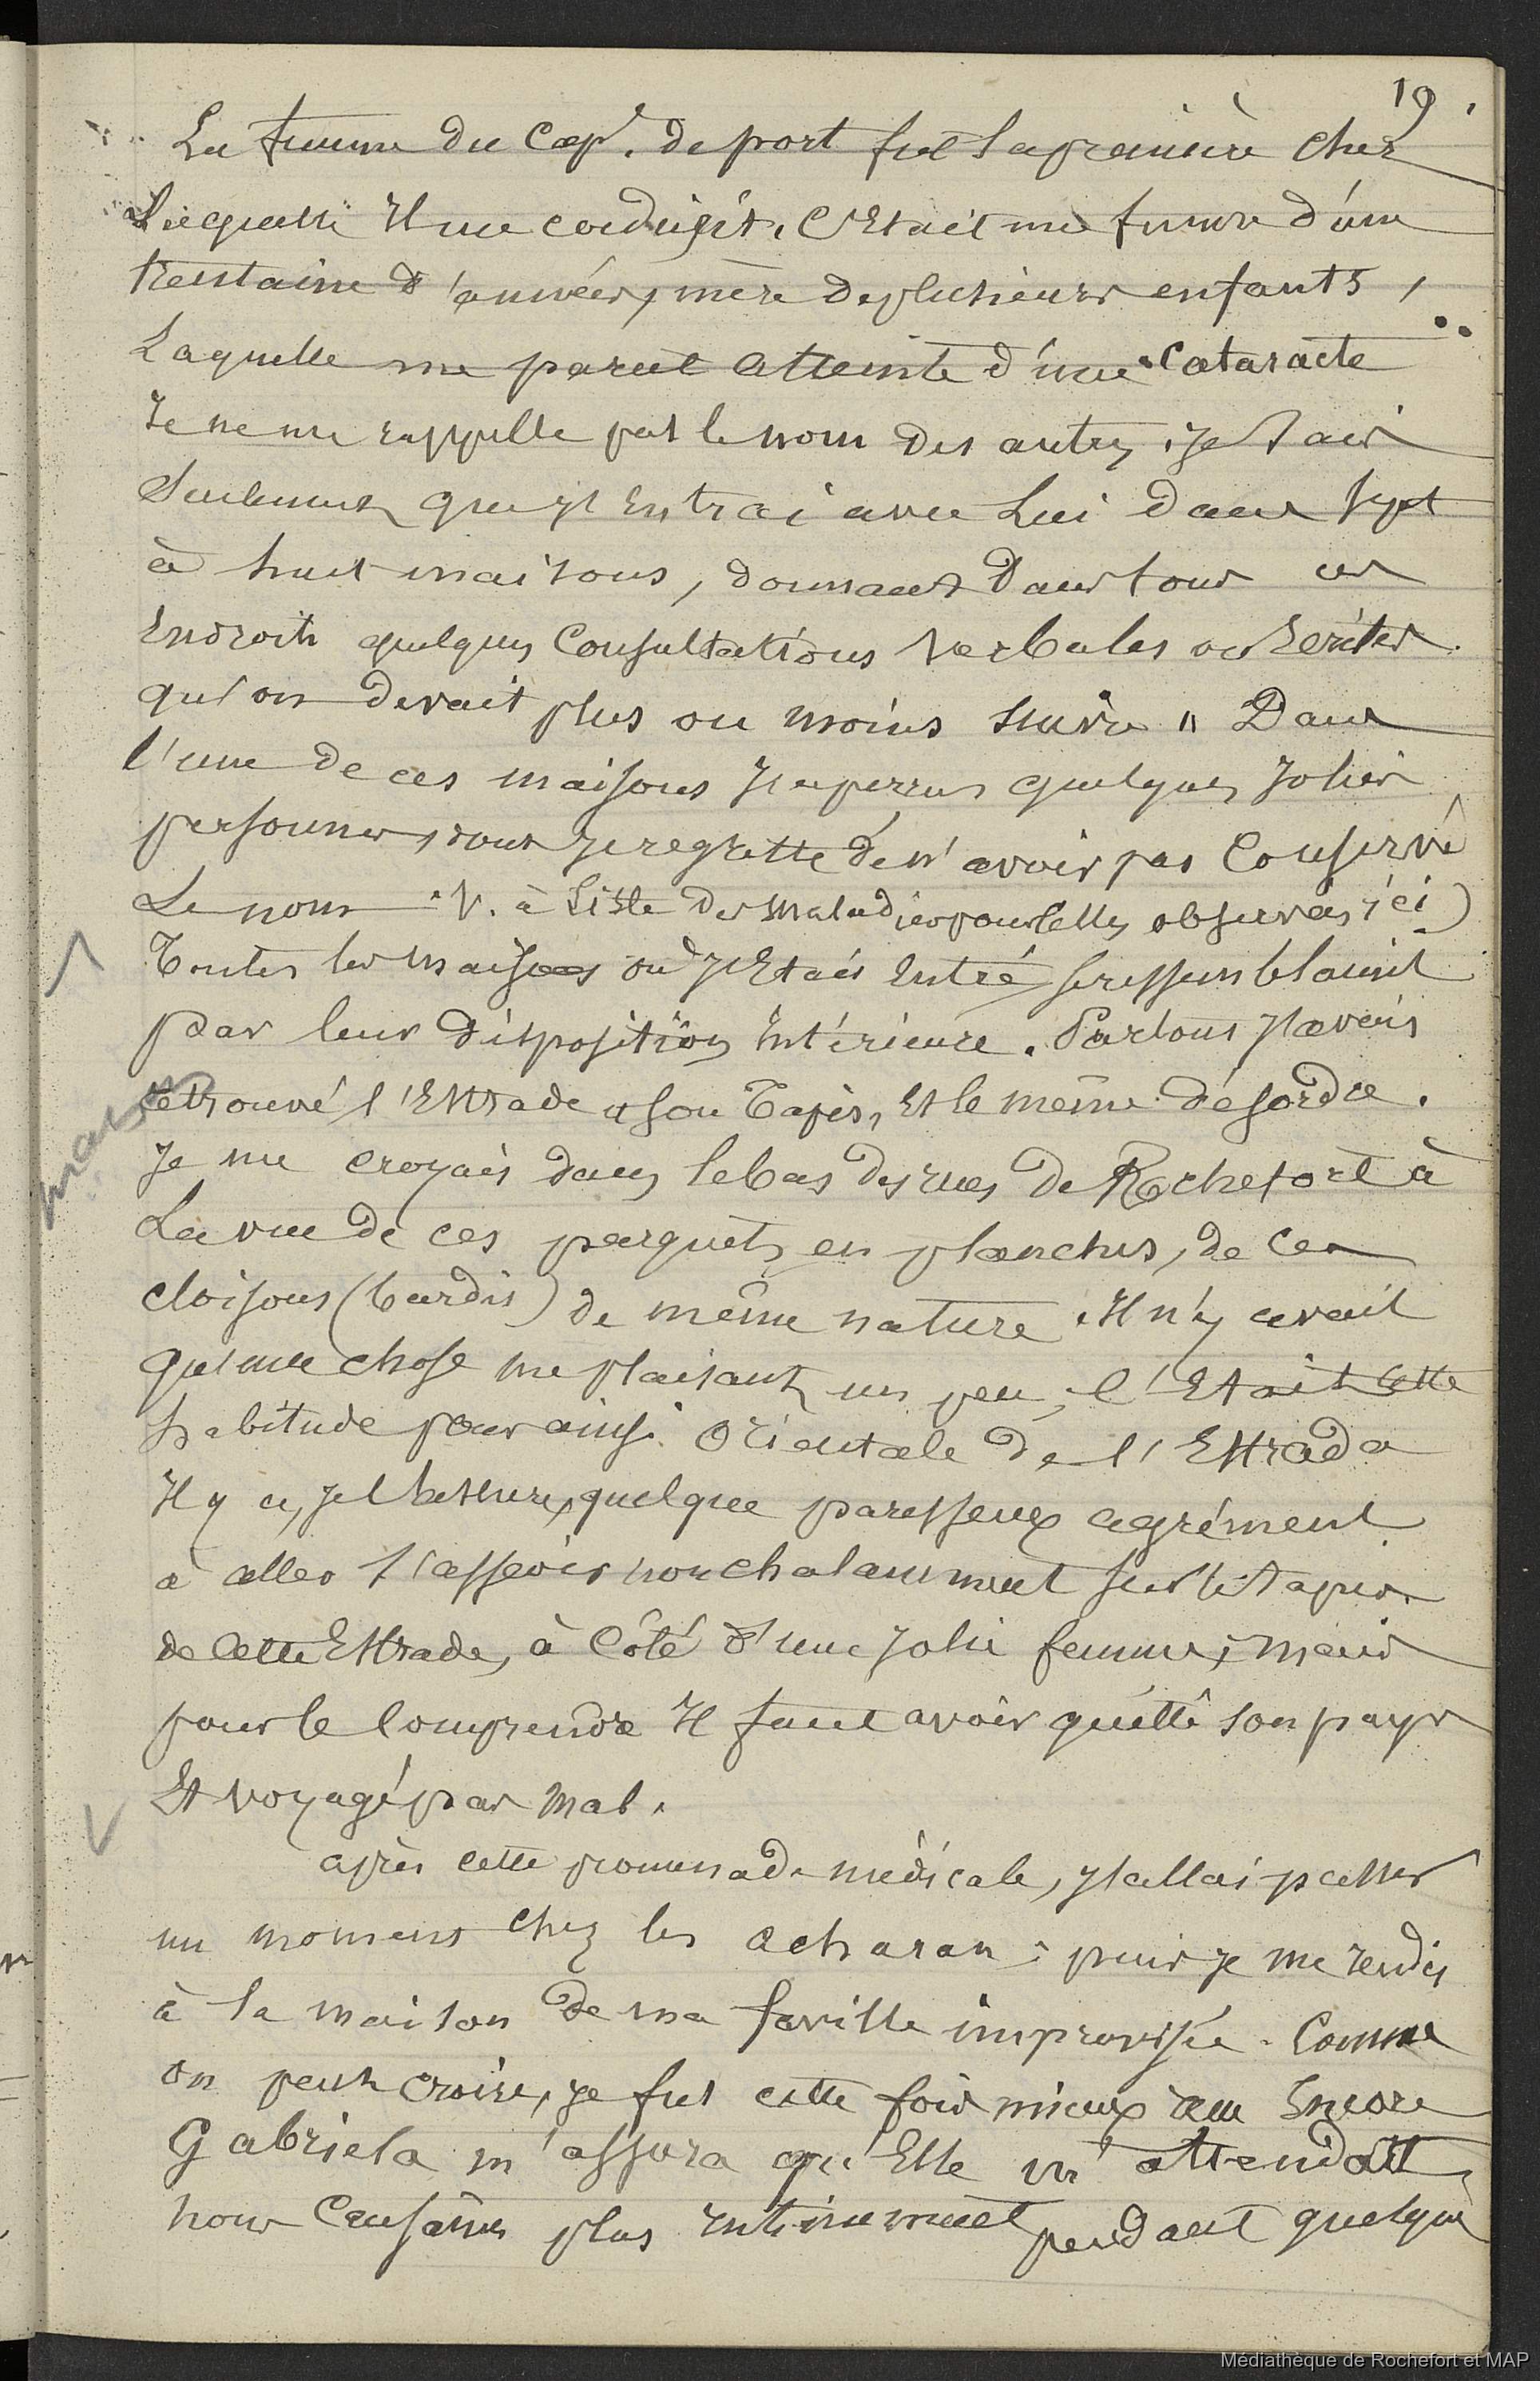 19.
La femme du Cap. de port fut la première chez
Laquelle Il me conduisit. C'Etait une femme d'une
trentaine d'années, mère de plusieurs enfants,
Laquelle me parut atteinte d'une Cataracte
Je ne me rappelle pas le nom des autres. je sais
Seulement que j'Entrai avec Lui dans sept
à huit maisons, donnant Dans tous ces
Endroits quelques Consultations verbales ou Ecrites
qu'on devait plus ou moins suivre " Dans
l'une de ces maisons J'apperçus quelques Jolies
personnes, dont je regrette de n'avoir pas Conservé
Le nom. V. à Liste des maladies pour celles observées ici)
Toutes les maisons où J'Etais Entré se ressemblaient
par leur disposition Intérieure. Partout J'avais
retrouvé l'Estrade et son Tapis, Et le même désordre.
maison
Je me croyais dans le bas des rues de Rochefort à
La vue de ces parquets en planches, de ces
cloisons (bardis) de même nature. Il n'y avait
qu'une chose me plaisant un peu, c'Etait cette
habitude pour ainsi Orientale de l'Estrada
Il y a, je l'assure, quelque paresseux agrément
à aller s'asseoir nonchalamment sur le tapis
de cette Estrade, à côté d'une Jolie femme; mais
pour le comprendre Il faut avoir quitté son pays
Et voyagé par mal.
après cette promenade médicale, J'allai passer
un moment chez les Acharan; puis je me rendis
à la maison de ma famille improvisée. Comme
on peut croire, je fus cette fois mieux reçu Encore
Gabriela m'assura qu'Elle m'attendait,
nous Causâmes plus Intimement pendant quelques
Médiathèque de Rochefort et MAP